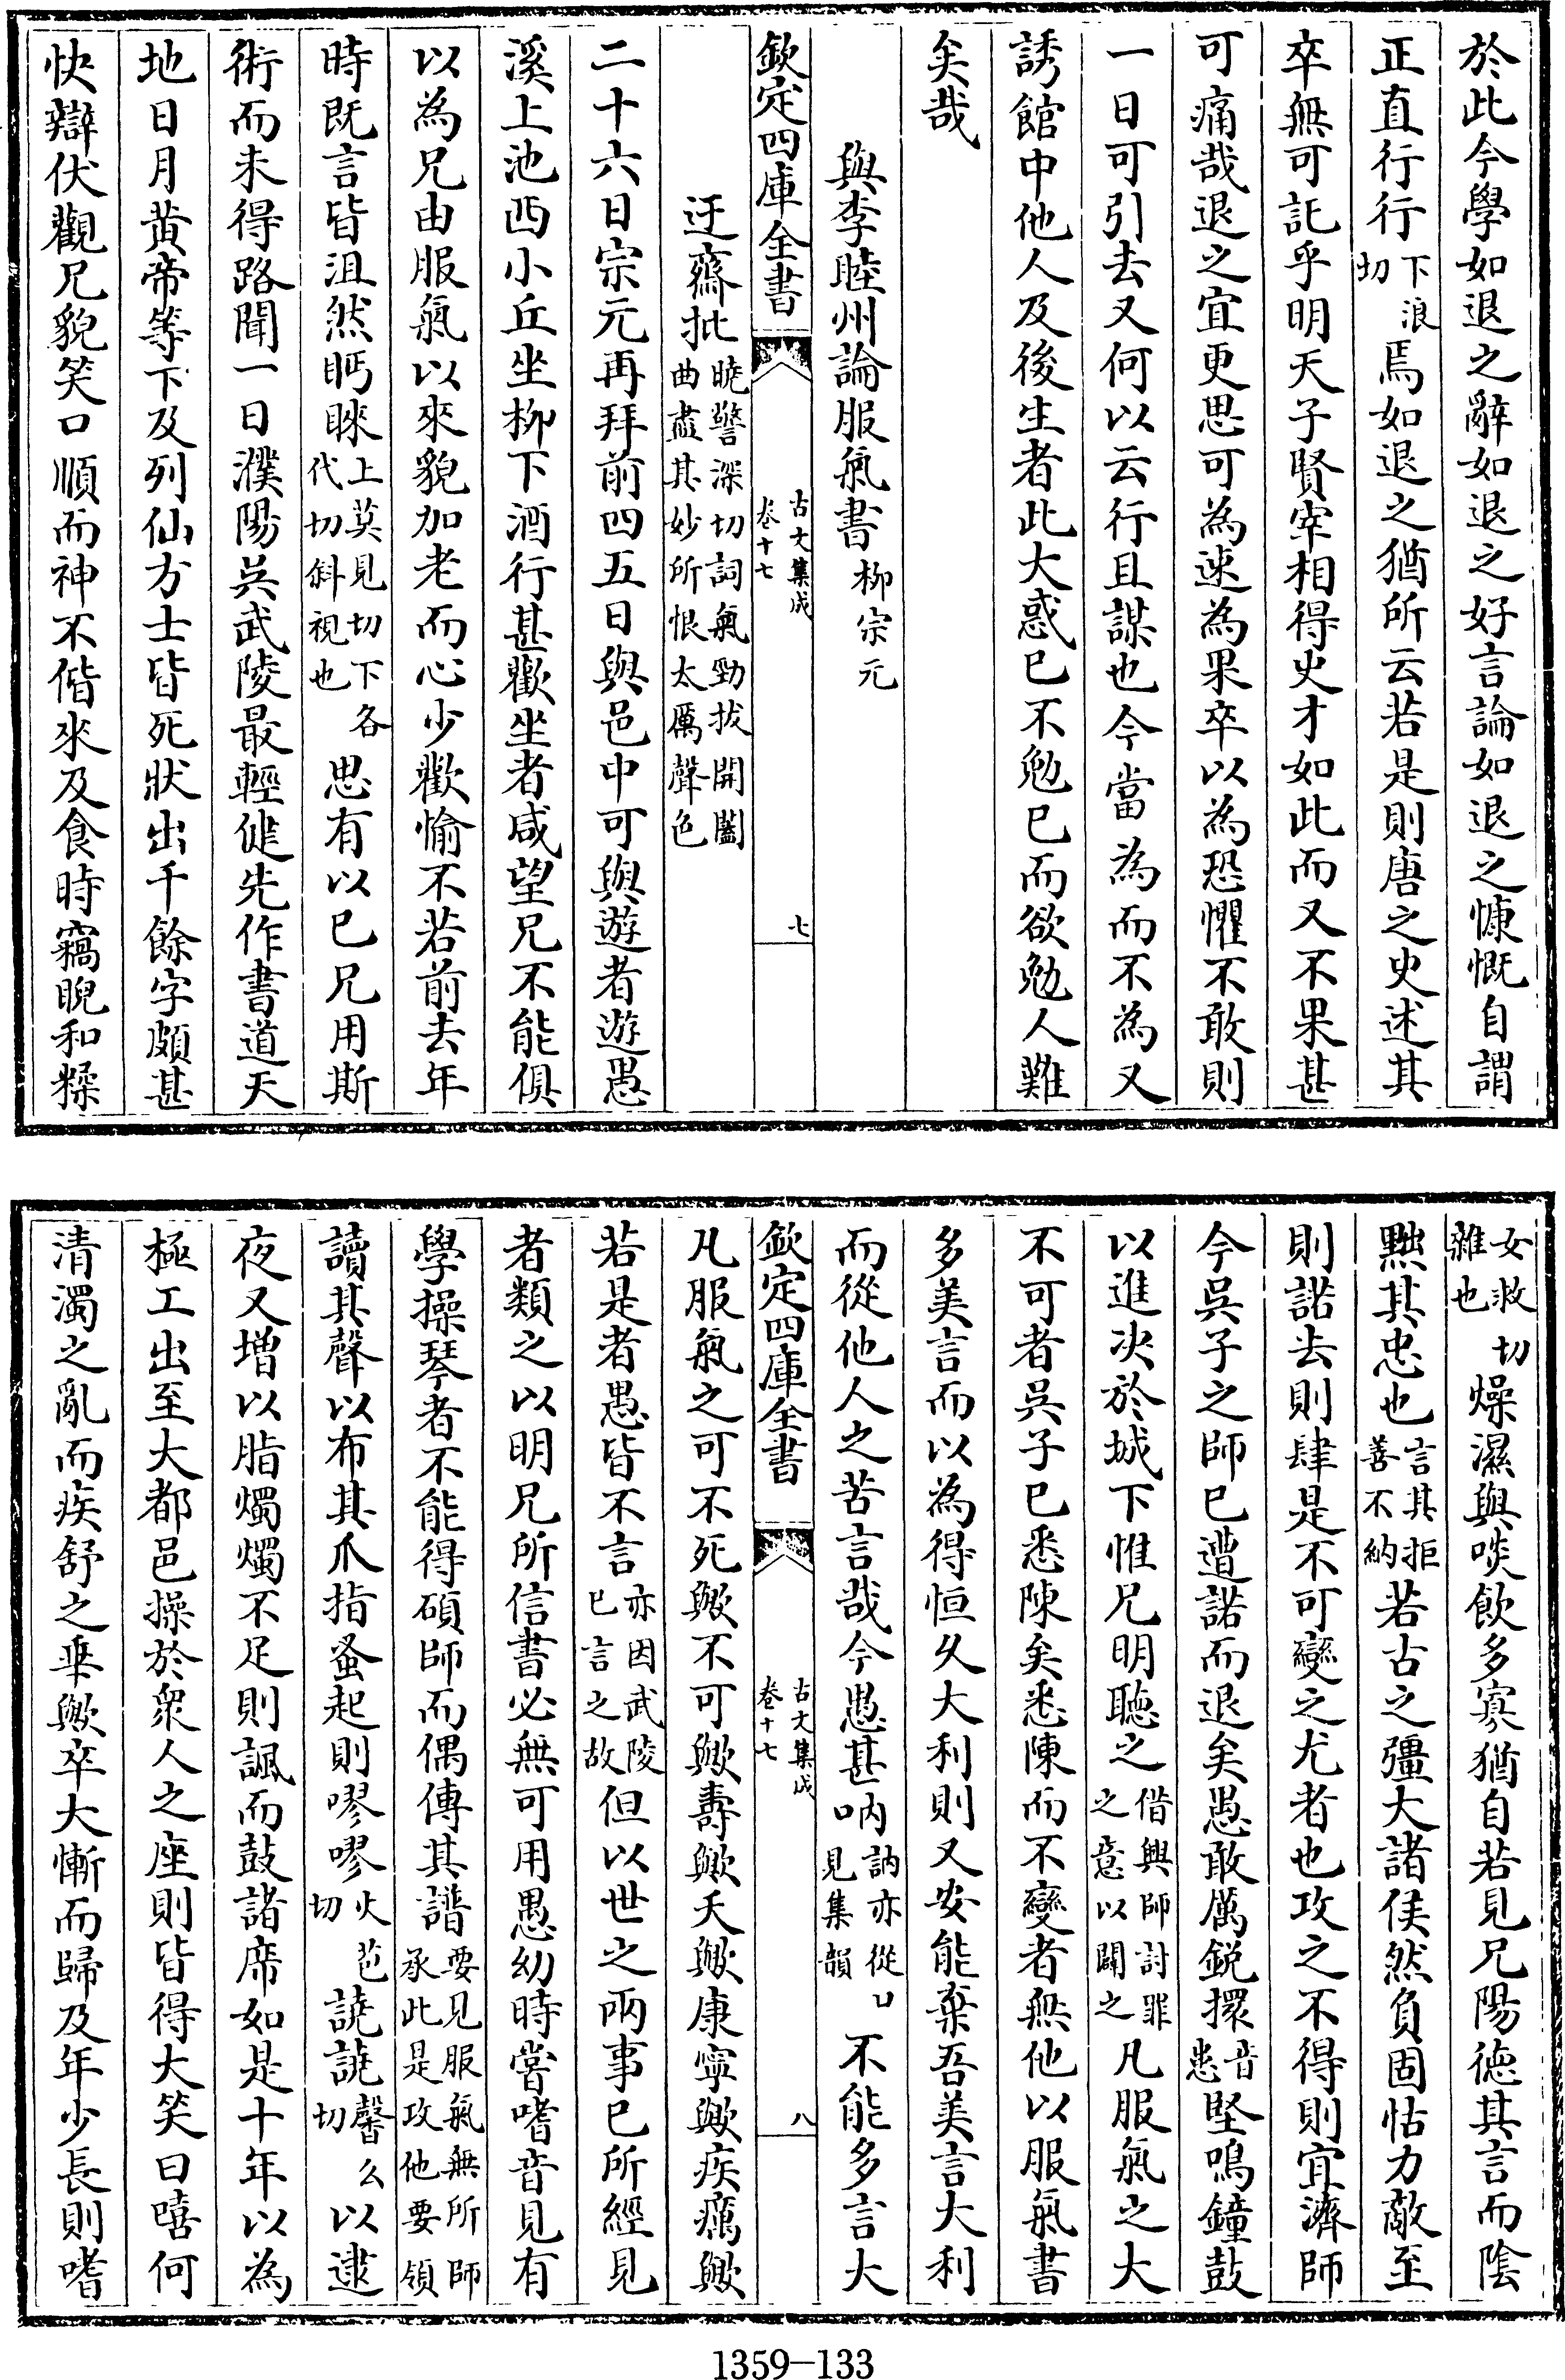 於此今學如退之辭如退之好言論如退之慷慨自謂
正直行行下浪切焉如退之猶所云若是則唐之史述其
卒無可託乎明天子賢宰相得史才如此而又不果甚
可痛哉退之宜更思可為速為果卒以為恐懼不敢則
一日可引去又何以云行且謀也今當為而不為又
誘館中他人及後生者此大惑已不勉已而欲勉人難
矣哉
與李睦州論服氣書柳宗元
欽定四庫全書
古文集成
卷十七
七
迂齋批曉警深切詞氣勁拔開闔曲盡其妙所恨太厲聲色
二十六日宗元再拜前四五日與邑中可與遊者遊愚
溪上池西小丘坐柳下酒行甚歡坐者咸望兄不能俱
以為兄由服氣以來貌加老而心少歡愉不若前去年
時既言皆沮然眄睞上莫見切下各代切斜視也思有以已兄用斯
術而未得路聞一日濮陽吳武陵最輕健先作書道天
地日月黃帝等下及列仙方士皆死狀出千餘字頗甚
快辯伏觀兄貌笑口順而神不偕來及食時竊睨和糅
女救切雜也燥濕與啖飲多寡猶自若見兄陽德其言而陰
黜其忠也言其拒善不納若古之彊大諸侯然負固怙力敵至
則諾去則肆是不可變之尤者也攻之不得則宜濟師
今吳子之師已遭諾而退矣愚敢厲銳擐音患堅鳴鐘鼓
以進決於城下惟兄明聽之偕興師討罪之意以闢之凡服氣之大
不可者吳子已悉陳矣悉陳而不變者無他以服氣書
多美言而以為得恒久大利則又安能棄吾美言大利
而從他人之苦言哉今愚甚吶訥亦從口見集韻不能多言大
欽定四庫全書
古文集成
卷十七
八
凡服氣之可不死歟不可歟壽歟夭歟康寧歟疾癘歟
若是者愚皆不言亦因武陵已言之故但以世之兩事已所經見
者類之以明兄所信書必無可用愚幼時嘗嗜音見有
學操琴者不能得碩師而偶傳其譜要見服氣無所師承此是攻他要領
讀其聲以布其爪指蚤起則嘐嘐火芭切譊譊馨么切以逮
夜又增以脂燭燭不足則諷而鼓諸席如是十年以為
極工出至大都邑操於眾人之座則皆得大笑曰嘻何
清濁之亂而疾舒之乖歟卒大慚而歸及年少長則嗜
1359-133